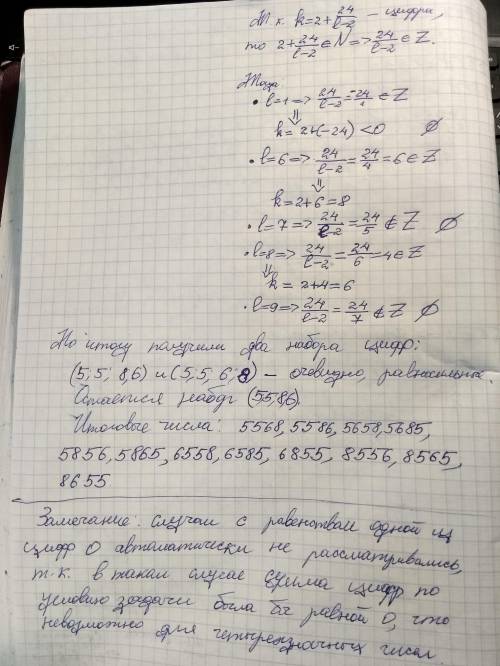 Т.к. k=2+24/(l-2) – цифра,
то 2+24/(l-2) ∈ N => 24/(l-2) ∈ Z.
Тогда
• l=1 => 24/(l-2) = -24/1 ∈ Z
⇓
k=2+(-24)<0 ∅
• l=6 => 24/(l-2) = 24/4 = 6 ∈ Z
⇓
k=2+6=8
• l=7 => 24/(l-2) = 24/5 ∉ Z ∅
• l=8 => 24/(l-2) = 24/6 = 4 ∈ Z
⇓
k = 2+4=6
• l=9 => 24/(l-2) = 24/7 ∉ Z ∅
По итогу получили два набора цифр:
(5; 5; 8; 6) и (5; 5; 6; 8) – очевидно, равносильных.
Остается набор (5586)
Итоговые числа: 5568, 5586, 5658, 5685,
5856, 5865, 6558, 6585, 6855, 8556, 8565,
8655
Замечание: случаи с равенством одной из
цифр 0 автоматически не рассматривались,
т.к. в таком случае сумма цифр по
условию задачи была бы равной 0, что
невозможно для четырехзначных чисел